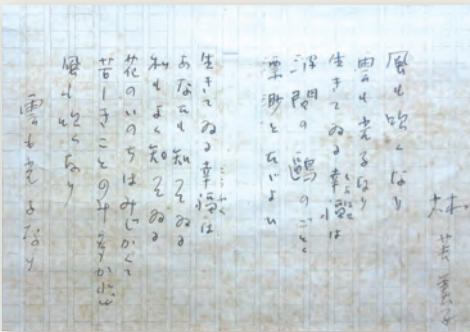 林芙美子
風も吹くなり
雲も光るなり
生きてゐる幸福は
波間の鷗のごとく
漂渺とたゞよひ
生きてゐる幸福は
こうふく
あなたも知ってゐる
私もよく知ってゐる
花のいのちはみじかくて
苦しきことのみ多かれど
風も吹くなり
雲も光るなり